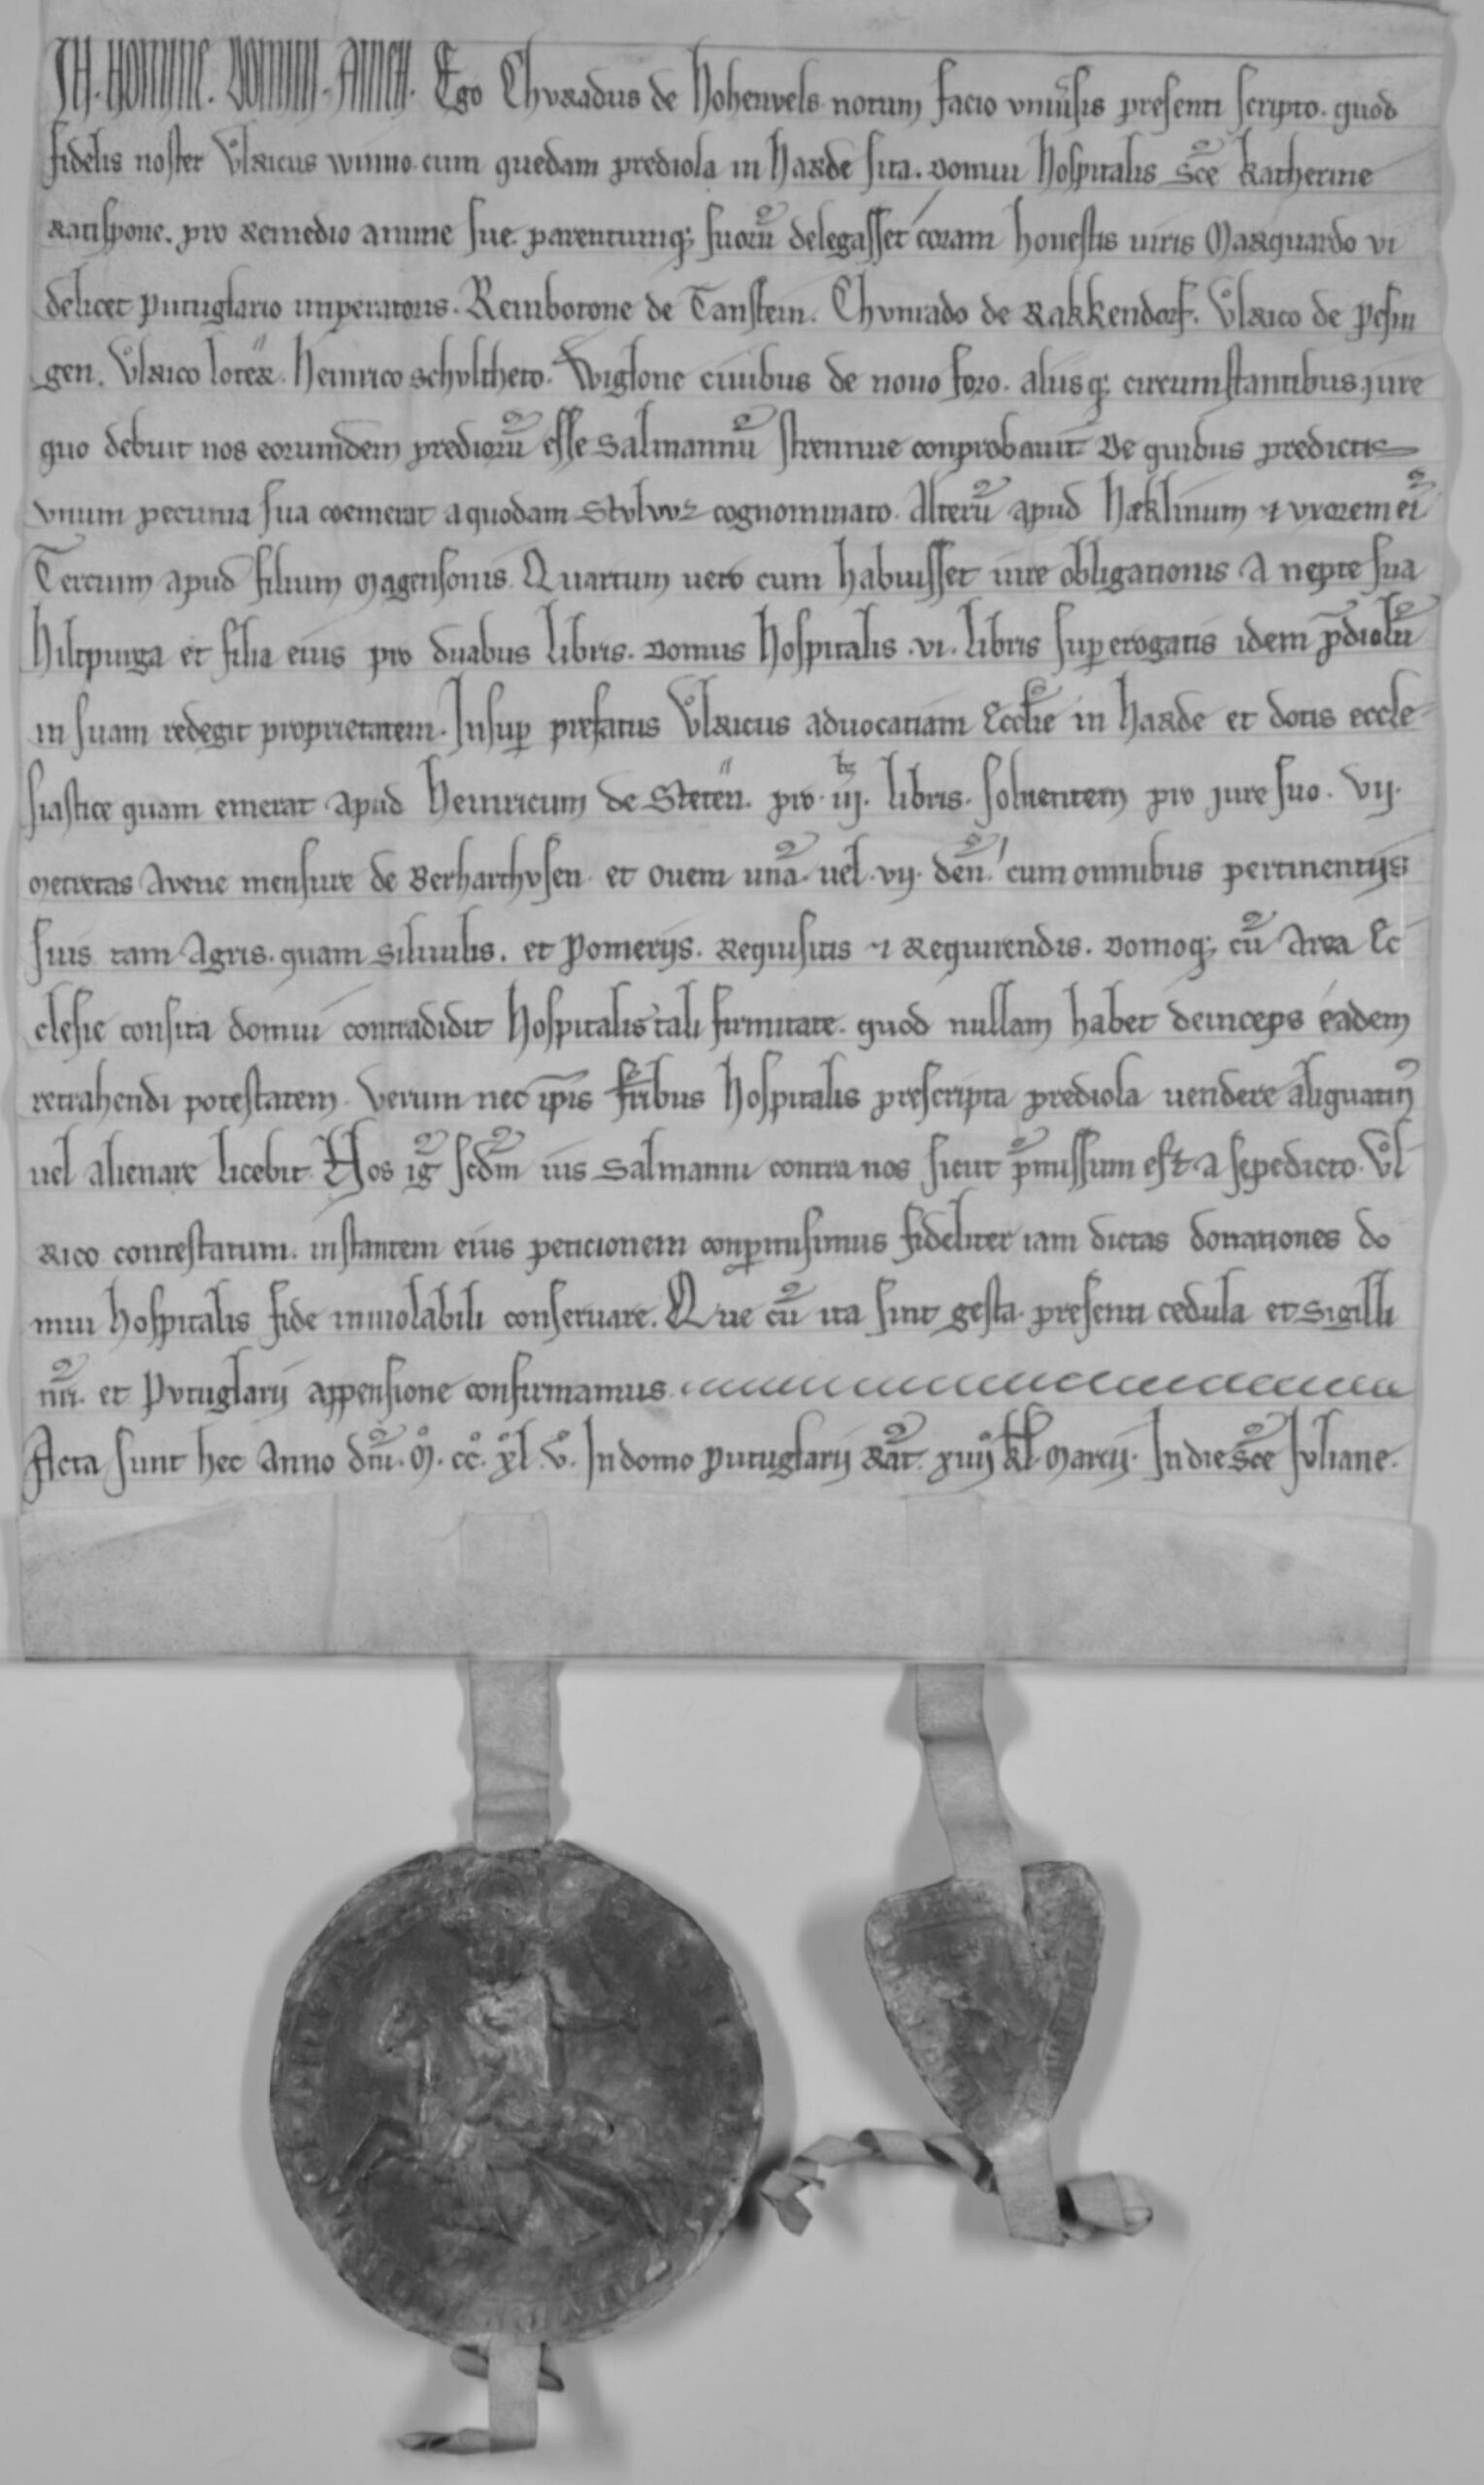 IN. NOMINE. DOMINI. AMEN. Ego Chvnradus de Hohenvels notum facio vniu͛sis presenti scripto. quod
fidelis noster Vͦlricus winno cum quedam prediola in Harde sita. domui Hospitalis Sc̄e Katherine
Ratispone. pro Remedio anime sue parentumq; suoru̅ delegasset coram honestis uiris Marquardo vi
delicet putuglario imperatoris. Remborone de Tanstein. Chvnrado de Rakkendorf. Vͦlrico de
gen. Vͦlrico Heinrico Schvltheto. Wiglone ciuibus de nouo foro. aliisq; circumstantibus. iure
quo debuit nos eorumdem predioru̅ esse Salmannu̅ strennue conprobauit De quibus predictis
vnum pecunia sua coemerat a quodam cognominato. Alteru̅ apud Hæklinum ⁊ vxorem ei᷒
Tercium apud filium Magensonis. Quartum uero cum habuisset iure obligationis A nepte sua
Hiltpurga et filia eius pro duabus libris. domus Hospitalis .vi. libris sup̱erogatis idem p̄diolu̅
in suam redegit proprietatem. Insup̱ prefatus Vͦlricus aduocatiam Eccl̅ie in Harde et dotis eccle
siastice quam emerat apud Heinricum de Steten̄. pro. iij. libris. soluentem pro jure suo. vij.
metretas Avene mensure de Berharthvsen. et ouem una̅. uel .vij. den̅. cum omnibus pertinentijs
suis tam Agris. quam siluulis. et Pomerijs. Requisitis ⁊ Requirendis. domoq; cu̅ Area Ec
clesie consita domui contradidit Hospitalis tali firmitate. quod nullam habet deinceps eadem
retrahendi potestatem. Verum nec ip̅is fr̅ibus Hospitalis prescripta prediola uendere aliquatin᷒
uel alienare licebit. Nos ig̅ scd̅m ius Salmanni contra nos sicut p̅missum est a sepedicto. Vͦl
rico contestatum. instantem eius peticionem conp̱misimus fideliter iam dictas donationes do
mui Hospitalis fide inuiolabili conseruare. Que cu̅ ita sint gesta. presenti cedula et Sigilli
nr̅i. et Pvtuglarij appensione confirmamus.
Acta sunt hec Anno dn̅i. M. cc. xl. v. In domo putuglarij Rat̅. xiiij kl̅. Marcij. In die Sc̄e Jvliane.